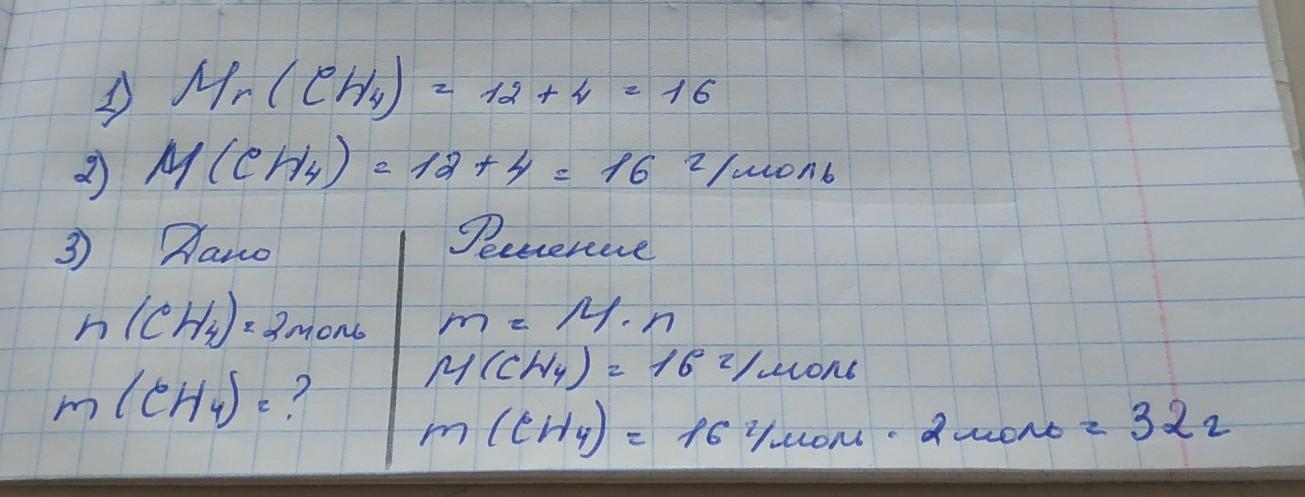 1) Mr(CH4) = 12 + 4 = 16
2) M(CH4) = 12 + 4 = 16 г/моль
3) Дано
n(CH4) = 2 моль
m(CH4) = ?
Решение
m = M · n
M(CH4) = 16 г/моль
m(CH4) = 16 г/моль · 2 моль = 32 г